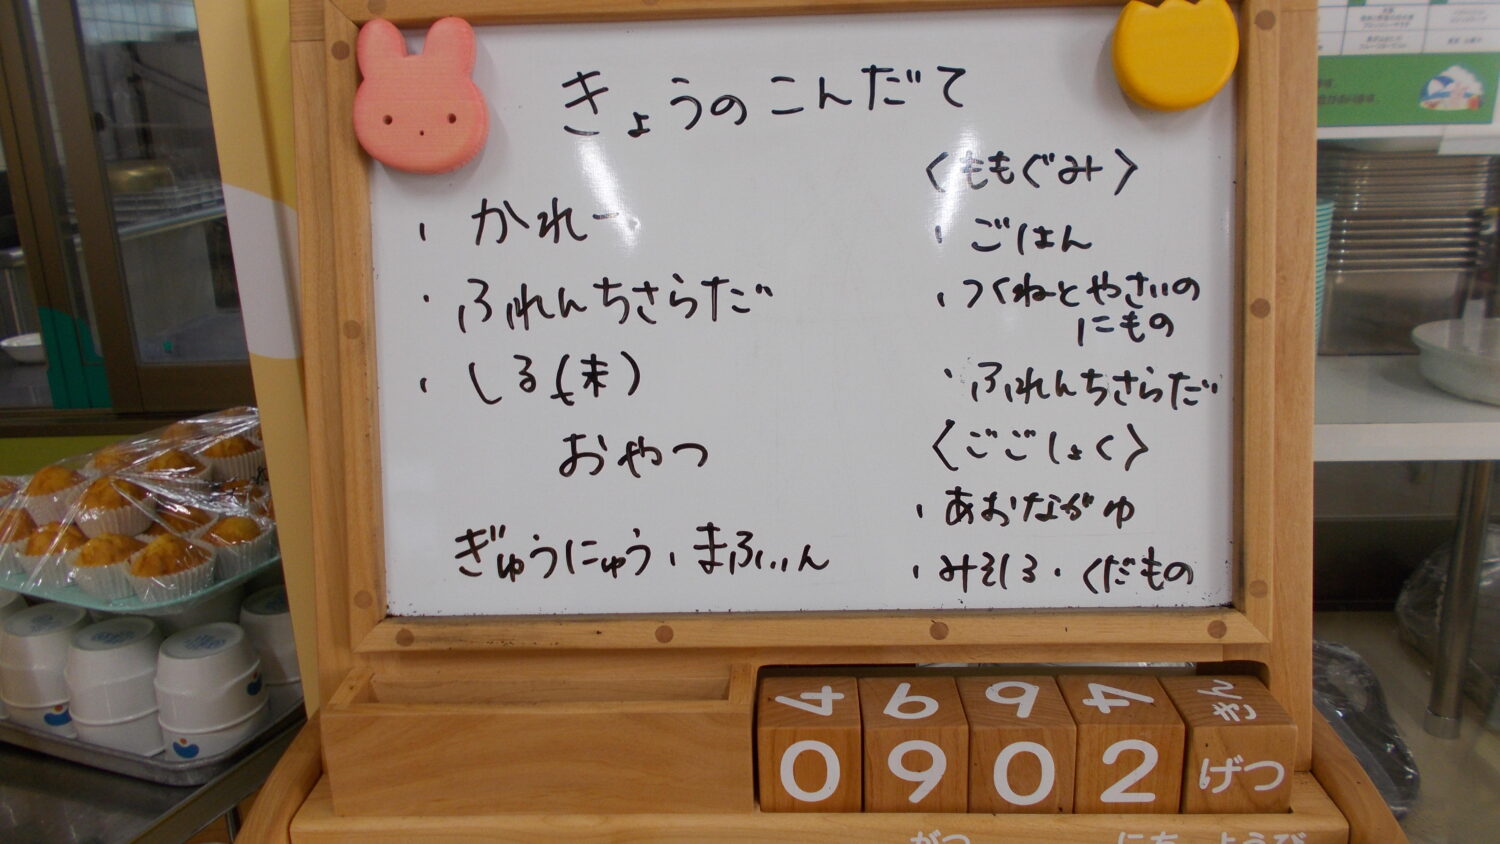 きょうのこんだて
・かれー
・ふれんちさらだ
・しる(末)
おやつ
ぎゅうにゅう・まふぃん
〈ももぐみ〉
・ごはん
・つくねとやさいの
にもの
・ふれんちさらだ
〈ごごしょく〉
・あおながゆ
・みそしる・くだもの
4 6 9 4 きん
0 9 0 2 げつ
がつ にち ようび